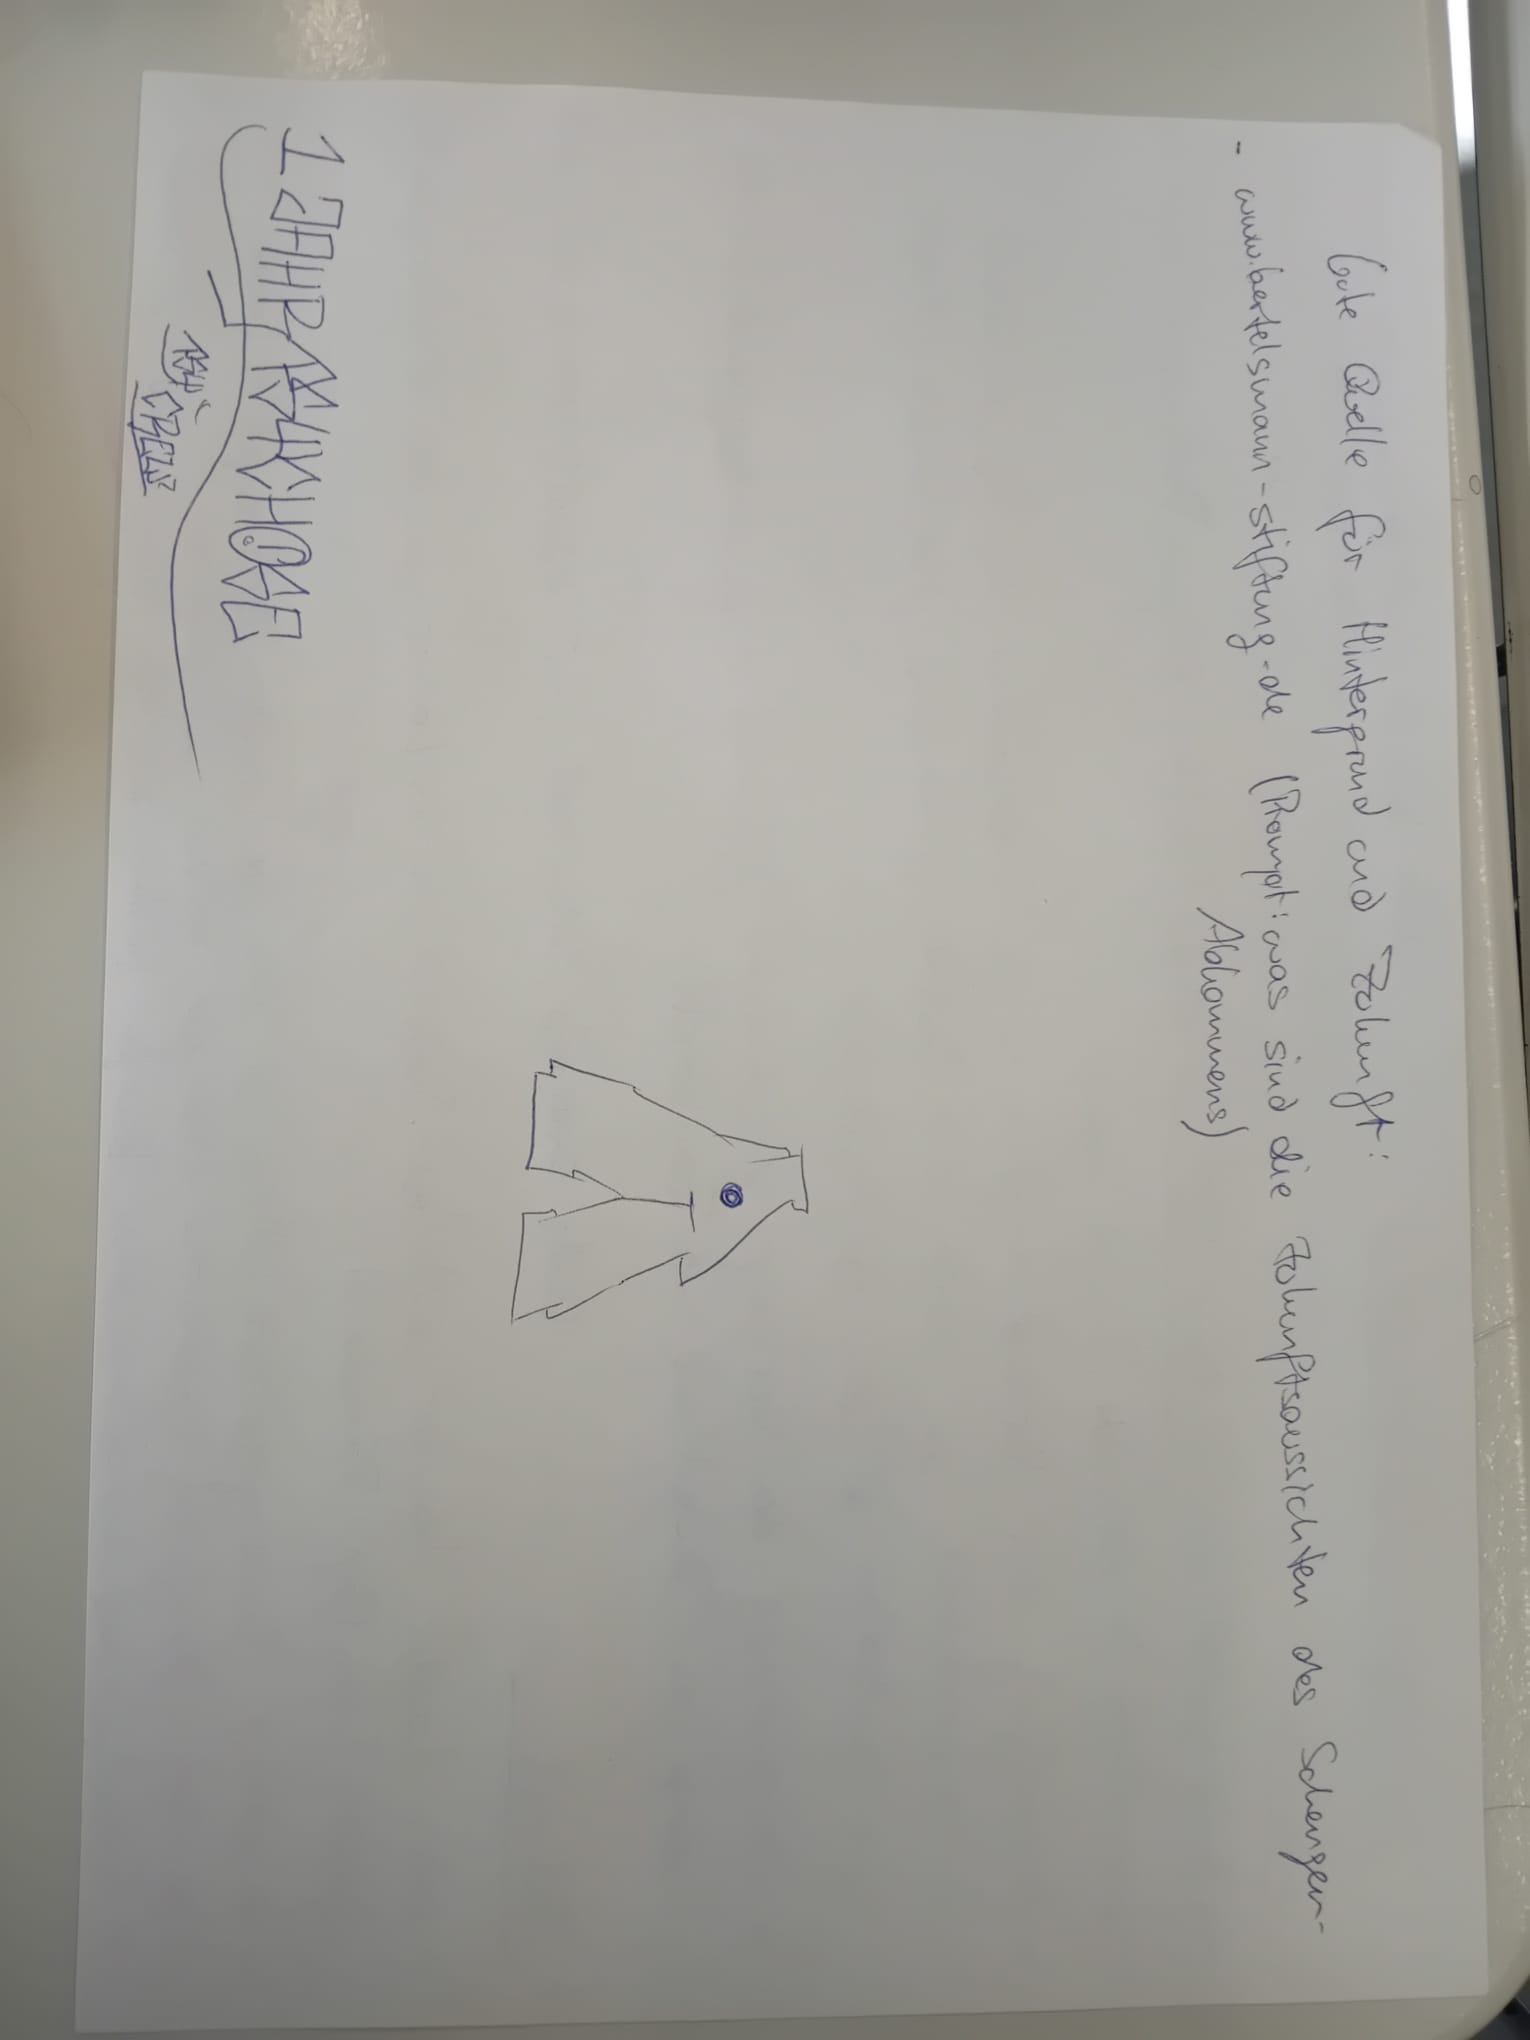 Gute Quelle für Hintergrund und Zukunft:
- www.bertelsmann-stiftung.de (Prompt: was sind die Zukunftsaussichten des Schengen-
Abkommens)
1 JAHR